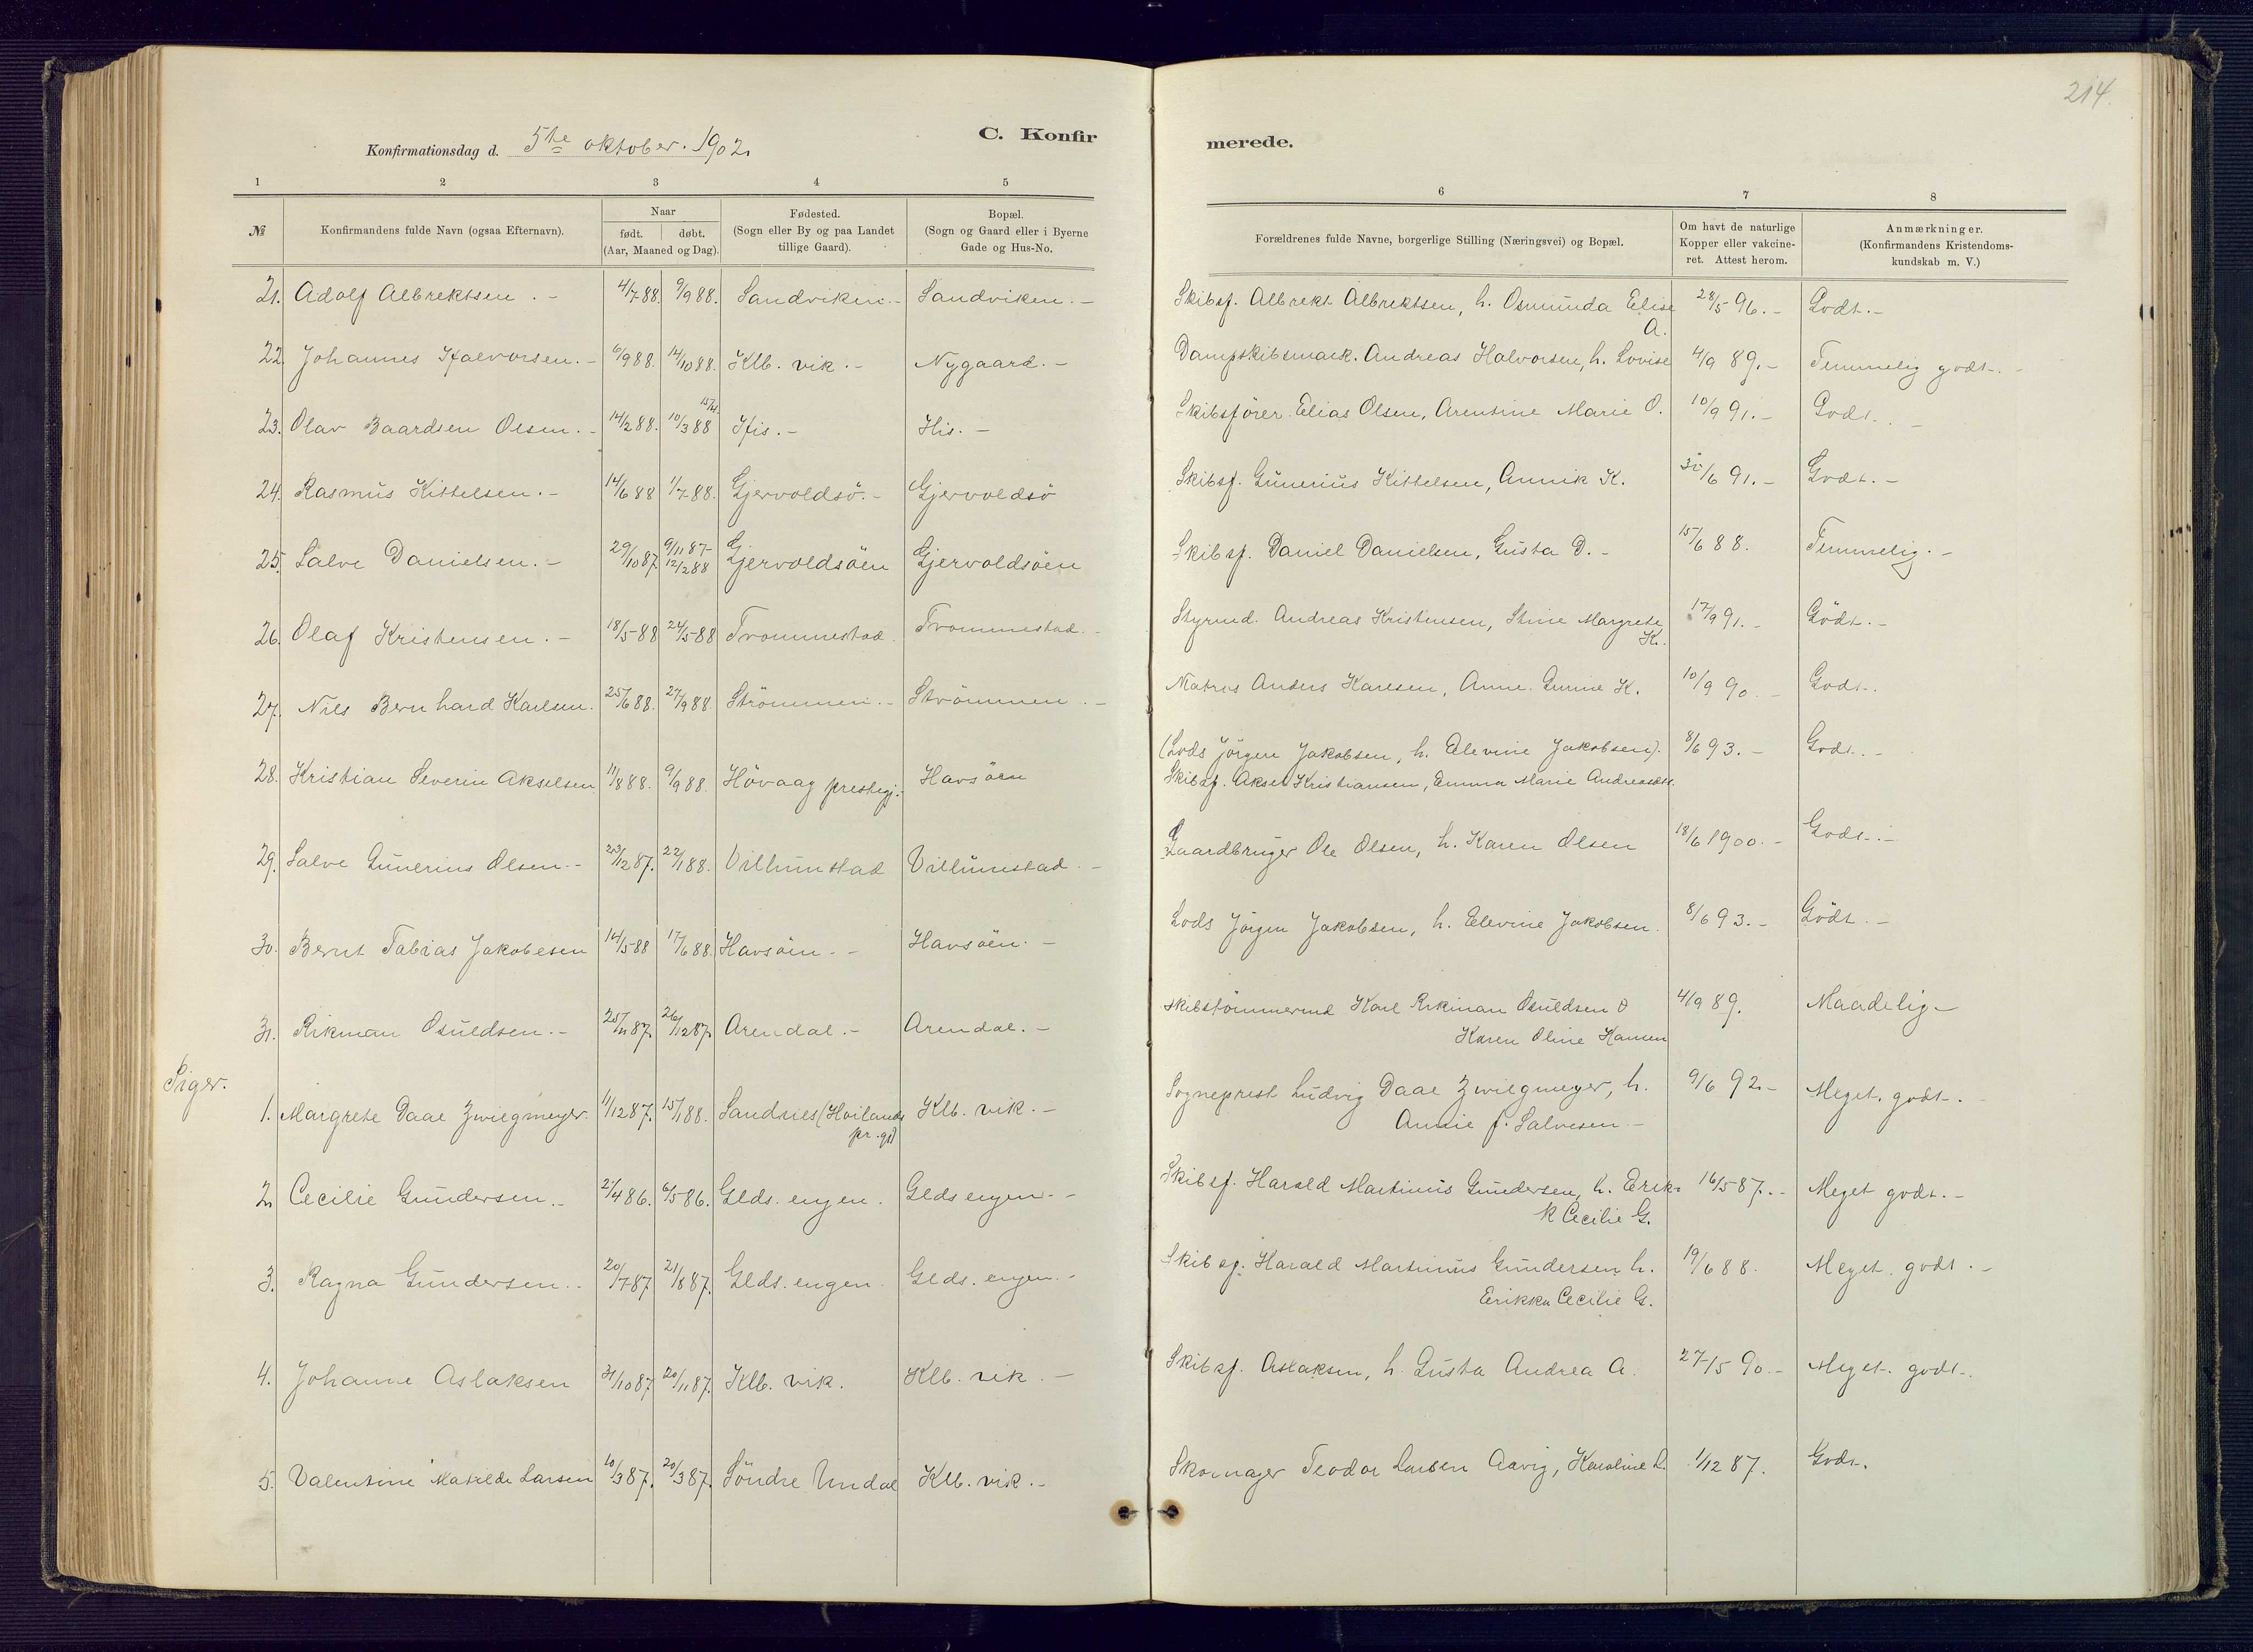 214.
C. Konfirmerede.
Konfirmationsdag d. 5te oktober. 1902.
1 2 3 4 5 6 7 8
№ Konfirmandens fulde Navn (ogsaa Efternavn). Naar født. døbt. (Aar, Maaned og Dag). Fødested. (Sogn eller By og paa Landet tillige Gaard). Bopæl. (Sogn og Gaard eller i Byerne Gade og Hus-No. Forældrenes fulde Navne, borgerlige Stilling (Næringsvei) og Bopæl. Om havt de naturlige Kopper eller vakcineret. Attest herom. Anmærkninger. (Konfirmandens Kristendomskundskab m. V.)
21. Adolf Albrektsen. - 4/7 88. 9/9 88. Sandviken. - Sandviken. - Skibsf. Albrekt Albrektsen, h. Osmunda Elise A. 28/5 96. - Godt. -
22. Johannes Halvorsen. - 6/9 88. 14/10 88. Klb. vik. - Nygaard. - Dampskibsmask. Andreas Halvorsen, h. Lovise 4/9 89. - Temmelig godt. -
23. Olav Baardsen Olsen. - 14/2 88. 10/3 88 15/4 His. - His. - Skibsfører. Elias Olsen, Arentine Marie O. 10/9 91. - Godt. -
24. Rasmus Kittelsen. - 14/6 88 1/7 88. Gjervoldsö. - Gjervoldsö Skibsf. Gunerius Kittelsen, Annik K. 30/6 91. - Godt. -
25. Salve Danielsen. - 29/10 87. 9/11 87 - 12/2 88 Gjervoldsöen Gjervoldsöen Skibsf. Daniel Danielsen, Gusta D. - 15/6 88. Temmelig. -
26. Olaf Kristensen. - 18/5 88 24/5 88 Trommestad. Trommestad. - Styrmd. Andreas Kristensen, Stine Margrete K. 17/9 91. - Godt. -
27. Nils Bernhard Karlsen. 25/6 88. 27/9 88. Strömmen. - Strömmen. - Matros Anders Karlsen, Anne. Gurine K. 10/9 90. - Godt.
28. Kristian Severin Akselsen. 11/8 88. 9/9 88. Hövaag prestegj. Havsöen (Lods Jörgen Jakobsen, h. Elevine Jakobsen). Skibsf. Aksel Kristiansen, Emma Marie Andreasdt. 8/6 93. - Godt. -
29. Salve Gunerius Olsen. - 23/12 87. 22/1 88. Villumstad Villumstad. - Gaardbruger Ole Olsen, h. Karen Olsen 18/6 1900. - Godt. -
30. Bernt Tabias Jakobesen 14/5 88 17/6 88. Havsöen. - Havsöen. - Lods Jörgen Jakobsen, h. Elevine Jakobsen. 8/6 93. - Godt. -
31. Rikman Osuldsen. - 25/11 87. 26/12 87. Arendal. - Arendal. - Skibstömmermd Karl Rikman Osuldsen o Karen Oline Hansen 4/9 89. Maadelig -
Piger.
1. Margrete Daae Zwilgmeyer. 11/12 87. 15/1 88. Sandnes (Høilands pr. gd) Klb. vik. - Sogneprest Ludvig Daae Zwilgmeyer, h. Annie f. Salvesen - 9/6 92 - Meget. godt. -
2. Cecilie Gundersen. - 2/4 86. 6/5 86. Glds. engen. Glds engen. - Skibsf. Harald Martinius Gundersen, h. Erikk Cecilie G. 16/5 87. - Meget godt. -
3. Ragna Gundersen. - 20/7 87 21/8 87. Glds. engen. Glds. engen. - Skibsf. Harald Martinius Gundersen h. Erikka Cecilie G. 19/6 88. Meget. godt. -
4. Johanne Aslaksen 31/10 87 20/11 87. Klb. vik. Klb. vik. - Skibsf. Aslaksen, h. Gusta Andrea A. 27/5 90. - Meget. godt.
5. Valentine Matilde Larsen 10/3 87. 20/3 87. Söndre Undal Klb. vik. - Skomager Teodor Larsen Aavig, Karoline L. 1/12 87. Godt.